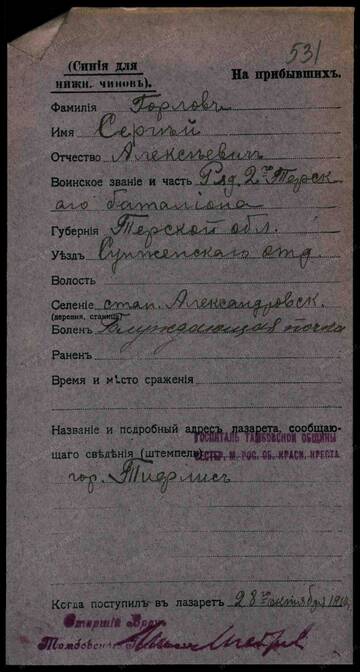 531
(Синія для
нижн. чиновъ).
На прибывшихъ.
Фамилія Горловъ
Имя Сергѣй
Отчество Алексѣевичъ
Воинское званіе и часть Ряд. 2го Терск
аго баталіона
Губернія Терской обл.
Уѣздъ Сунженскаго отд.
Волость
Селеніе стан. Александровск.
(деревня, станица)
Боленъ Блуждающая почка
Раненъ
Время и мѣсто сраженія
Названіе и подробный адресъ лазарета, сообщаю-
щаго свѣдѣнія (штемпель)
ГОСПИТАЛЬ ТАМБОВСКОЙ ОБЩИНЫ
СЕСТЕР. М. РОС. ОБ. КРАСН. КРЕСТА.
гор. Тифлисъ
Когда поступилъ въ лазаретъ 28го октября
Старшій Врач
Тамбовской